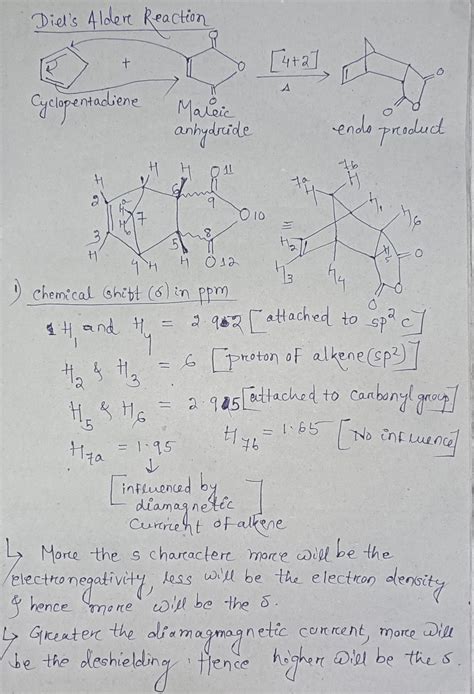 Diel's Alder Reaction
O
+
O
[4+2]
Δ
O
O
O
O
Cyclopentadiene
Maleic
anhydride
endo product
H
H
1
H
O 11
2
6
9
Ha
Hb
7
O 10
3
5
8
H
4
H
H
O 12
7a
H
7b
H
H1
H6
≡
H2
H3
H4
H5
O
O
O
1) chemical shift (δ) in ppm
H1 and H4 = 2.92 [attached to sp2 c]
H2 & H3 = 6 [proton of alkene (sp2)]
H5 & H6 = 2.95 [attached to carbonyl group]
H7a = 1.95
H7b = 1.65 [No influence]
↓
[influenced by
diamagnetic
current of alkene]
↳ More the s character more will be the
electronegativity, less will be the electron density
& hence more will be the δ.
↳ Greater the diamagmagnetic current, more will
be the deshielding. Hence higher will be the δ.